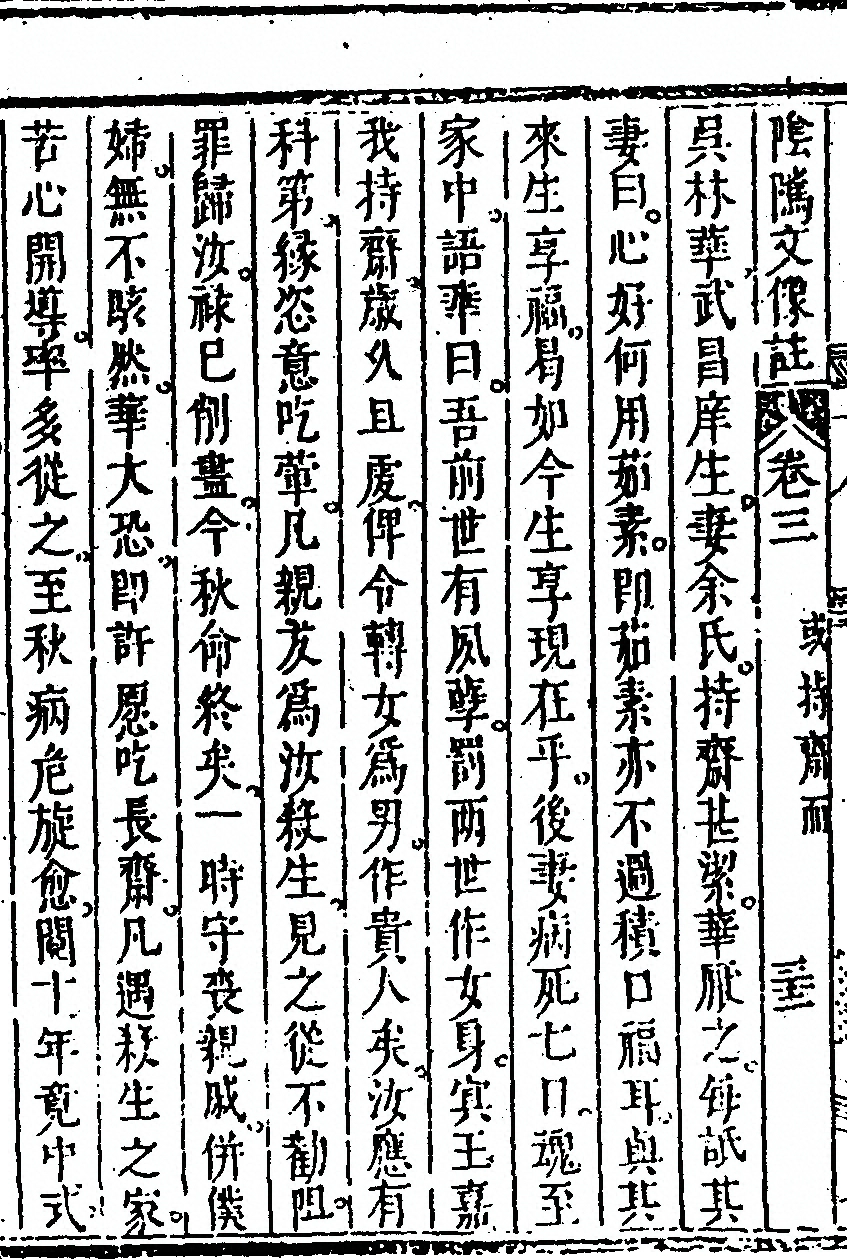 陰隲文像註 卷三 或持齋而 三十一
吳林華武昌庠生妻余氏持齋甚潔華厭之每詆其
妻曰心好何用茹素即茹素亦不過積口福耳與其
來生享福曷如今生享現在乎後妻病死七日魂至
家中語華曰吾前世有夙孽罰兩世作女身冥王嘉
我持齋歲久且虔俾令轉女為男作貴人矣汝應有
科第緣恣意吃葷凡親友為汝殺生見之從不勸阻
罪歸汝祿巳削盡今秋命終矣一時守喪親戚併僕
婦無不駭然華大恐即許愿吃長齋凡遇殺生之家
苦心開導率多從之至秋病危旋愈閱十年竟中式